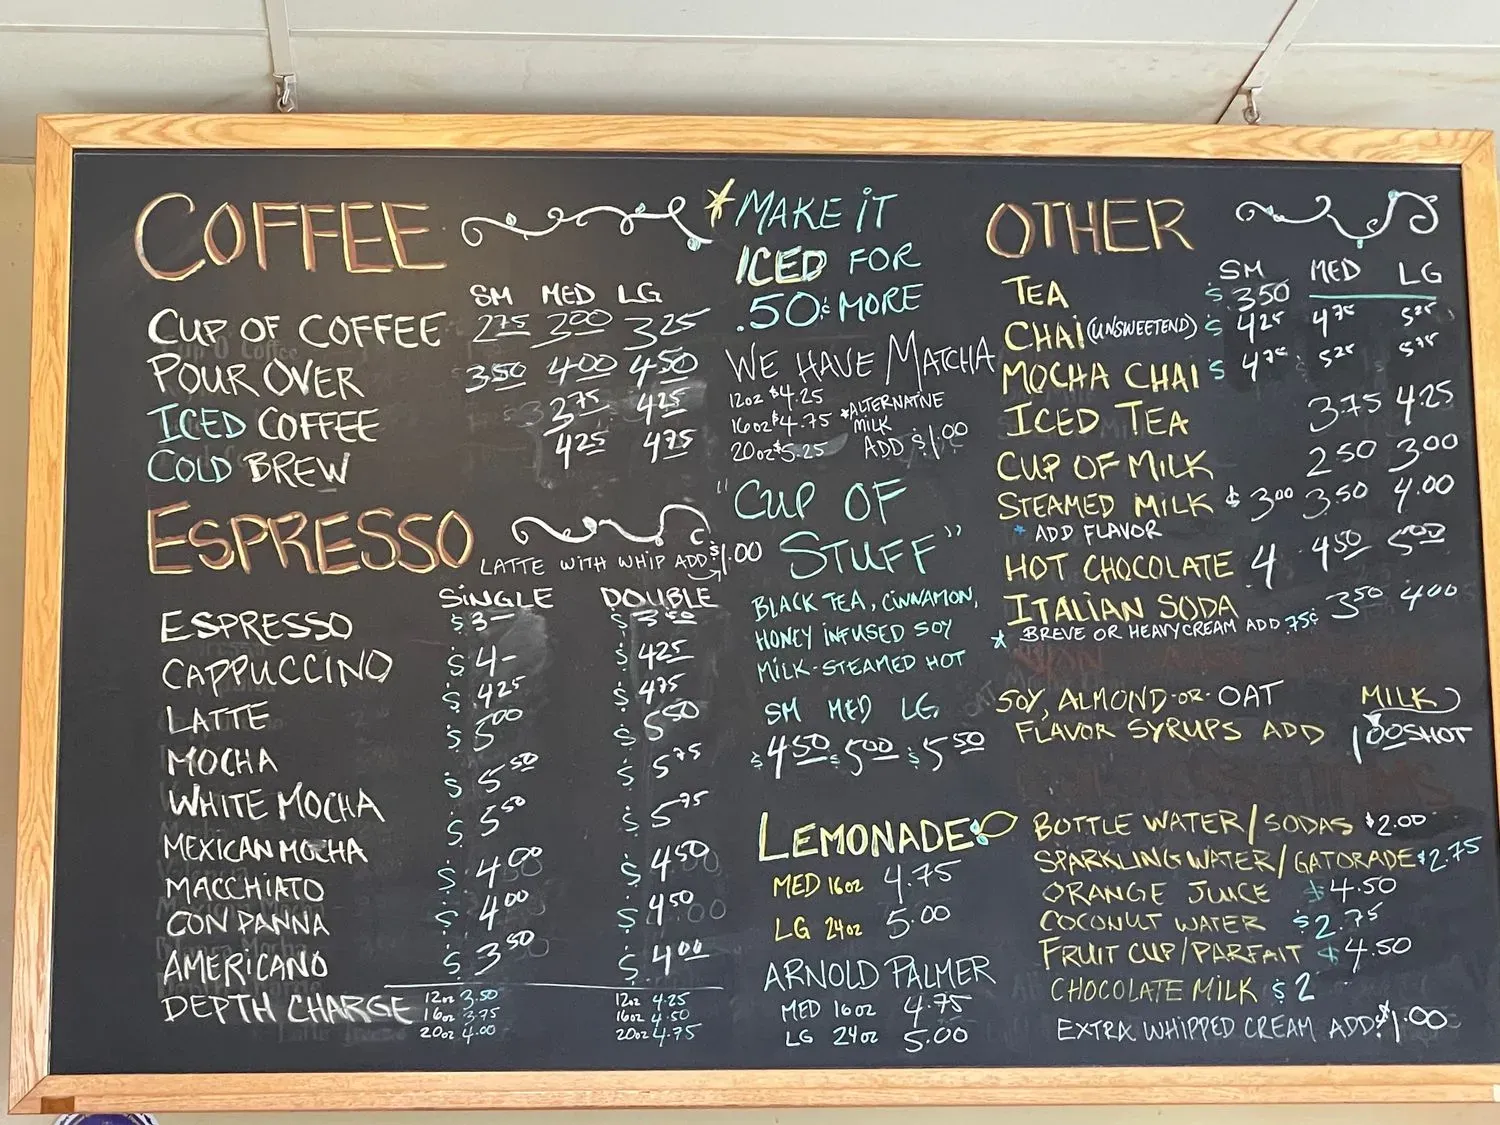 COFFEE
SM MED LG
CUP OF COFFEE 2 75 3 00 3 25
POUR OVER 3 50 4 00 4 50
ICED COFFEE 3 75 4 25
COLD BREW 4 25 4 75
ESPRESSO
LATTE WITH WHIP ADD $1.00
SINGLE DOUBLE
ESPRESSO $3– $3 50
CAPPUCCINO $4– $4 25
LATTE $4 25 $4 75
MOCHA $5 00 $5 50
WHITE MOCHA $5 50 $5 75
MEXICAN MOCHA $5 50 $5 75
MACCHIATO $4 00 $4 50
CON PANNA $4 00 $4 50
AMERICANO $3 50 $4 00
DEPTH CHARGE 12oz 3.50 12oz 4.25
16oz 3.75 16oz 4.50
20oz 4.00 20oz 4.75
*MAKE IT
ICED FOR
.50¢ MORE
WE HAVE MATCHA
12oz $4.25
16oz $4.75 *ALTERNATIVE
MILK
20oz $5.25 ADD $1.00
"CUP OF
STUFF"
BLACK TEA, CINNAMON,
HONEY INFUSED SOY
MILK-STEAMED HOT
SM MED LG
$4 50 $5 00 $5 50
LEMONADE
MED 16oz 4.75
LG 24oz 5.00
ARNOLD PALMER
MED 16oz 4.75
LG 24oz 5.00
OTHER
SM MED LG
TEA $3 50
CHAI (UNSWEETEND) $4 25 4 75 5 25
MOCHA CHAI $4 75 5 25 5 75
ICED TEA 3.75 4.25
CUP OF MILK 2 50 3 00
STEAMED MILK $3 00 3.50 4.00
* ADD FLAVOR
HOT CHOCOLATE 4 4 50 5 00
ITALIAN SODA 3 50 4 00
* BREVE OR HEAVY CREAM ADD .75¢
SOY, ALMOND-OR-OAT MILK
FLAVOR SYRUPS ADD 1 00 SHOT
BOTTLE WATER/SODAS $2.00
SPARKLING WATER/GATORADE $2.75
ORANGE JUICE $4.50
COCONUT WATER $2.75
FRUIT CUP/PARFAIT $4.50
CHOCOLATE MILK $2
EXTRA WHIPPED CREAM ADD $1.00